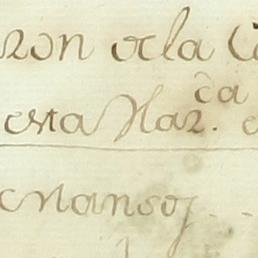 zon de la C
esta Haz.da e
enansoj